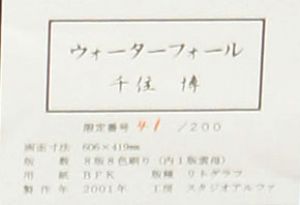 ウォーターフォール
千住 博
限定番号 41 /200
画面寸法 606×419mm
版 数 8版8色刷り（内1版雲母）
用 紙 BFK 版種 リトグラフ
製作年 2001年 工房 スタジオアルファ